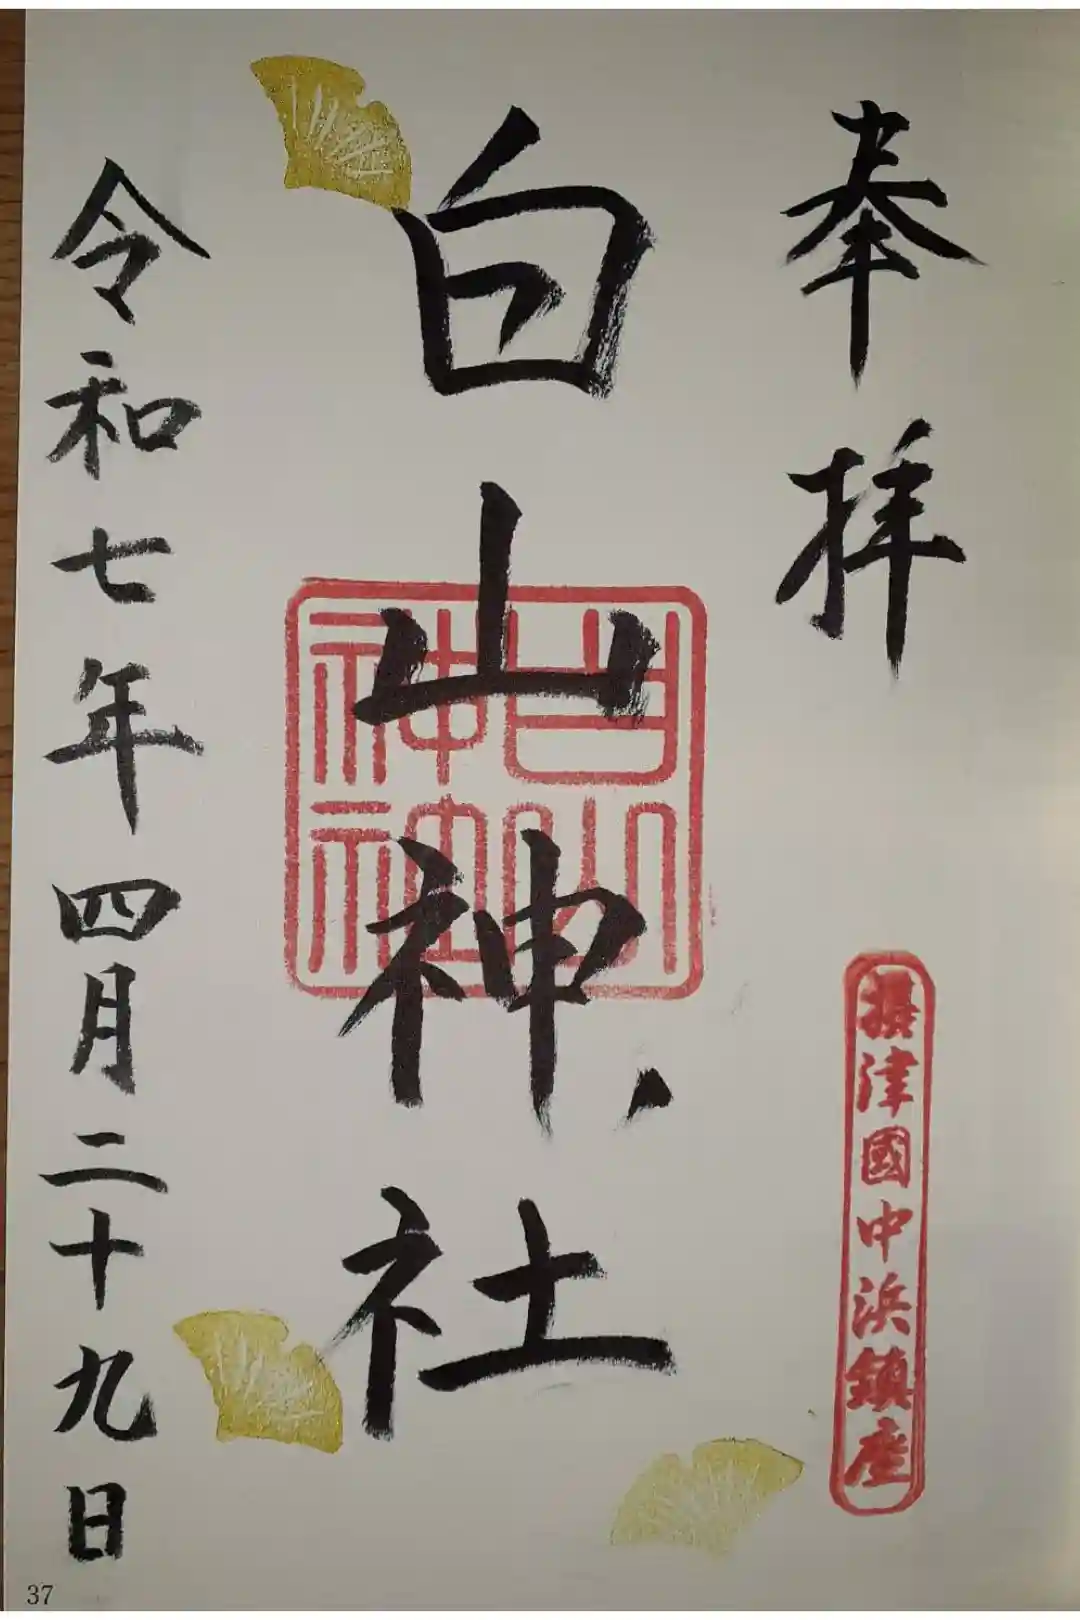 奉拝
摂津國中浜鎮座
白山神社
白山神社
令和七年四月二十九日
37